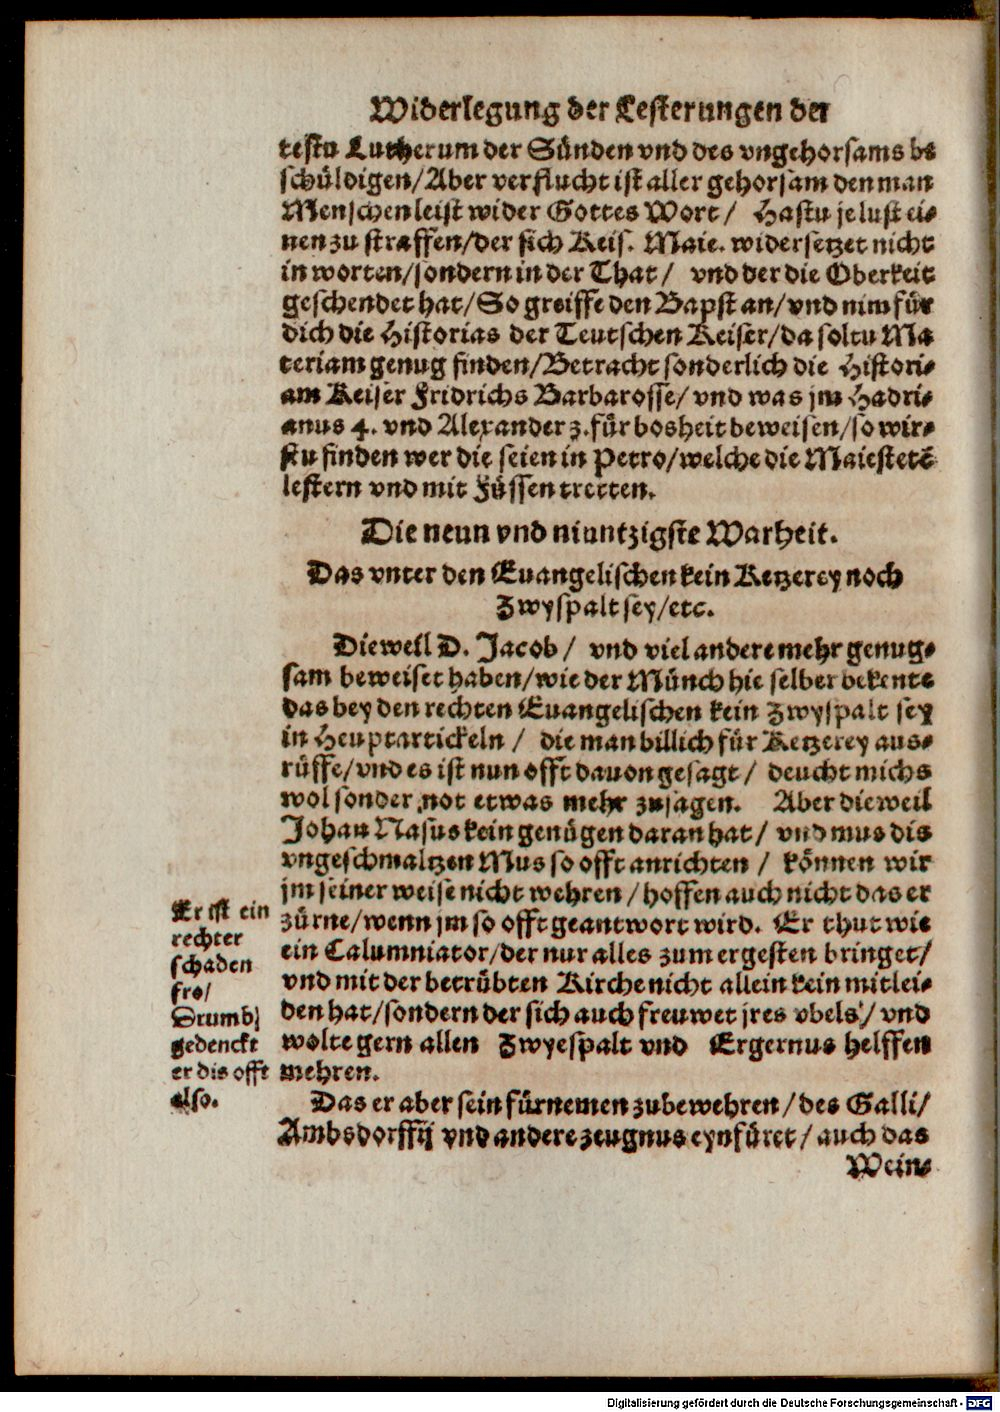 Widerlegung der Lesterungen der
testu Lutherum der Sünden vnd des vngehorsams be
schüldigen/Aber verflucht ist aller gehorsam den man
Menschen leist wider Gottes Wort/ Hastu je lust ei-
nen zu straffen/der sich Keis. Maie. widersetzet nicht
in worten/sondern in der That/ vnd der die Oberkeit
geschendet hat/So greiffe den Bapst an/vnd nim für
dich die Historias der Teutschen Keiser/da soltu Ma
teriam genug finden/Betracht sonderlich die Histori-
am Keiser Fridrichs Barbarosse/vnd was jm Hadri-
anus 4. vnd Alexander 3. für bosheit beweisen/so wir-
stu finden wer die seien in Petro/welche die Maiestetē
lestern vnd mit Füssen tretten.
Die neun vnd niuntzigste Warheit.
Das vnter den Euangelischen kein Ketzerey noch
Zwyspalt sey/etc.
Dieweil D. Jacob/ vnd viel andere mehr genug-
sam beweiset haben/wie der Münch hie selber bekente
das bey den rechten Euangelischen kein Zwyspalt sey
in Heuptartickeln/ die man billich für Ketzerey aus-
rüffe/vnd es ist nun offt dauon gesagt/ deucht michs
wol sonder not etwas mehr zusagen. Aber dieweil
Johan Nasus kein genügen daran hat/ vnd mus dis
vngeschmaltzen Mus so offt anrichten/ können wir
jm seiner weise nicht wehren/hoffen auch nicht das er
zürne/wenn jm so offt geantwort wird. Er thut wie
ein Calumniator/der nur alles zum ergesten bringet/
vnd mit der betrübten Kirche nicht allein kein mitlei-
den hat/sondern der sich auch freuwet jres vbels/ vnd
wolte gern allen Zwyespalt vnd Ergernus helffen
mehren.
Er ist ein
rechter
schaden
fro/
Drumb
gedenckt
er dis offt
also.
Das er aber sein fürnemen zubewehren/des Galli/
Ambsdorffij vnd andere zeugnus eynfüret/auch das
Wein-
Digitalisierung gefördert durch die Deutsche Forschungsgemeinschaft - DFG